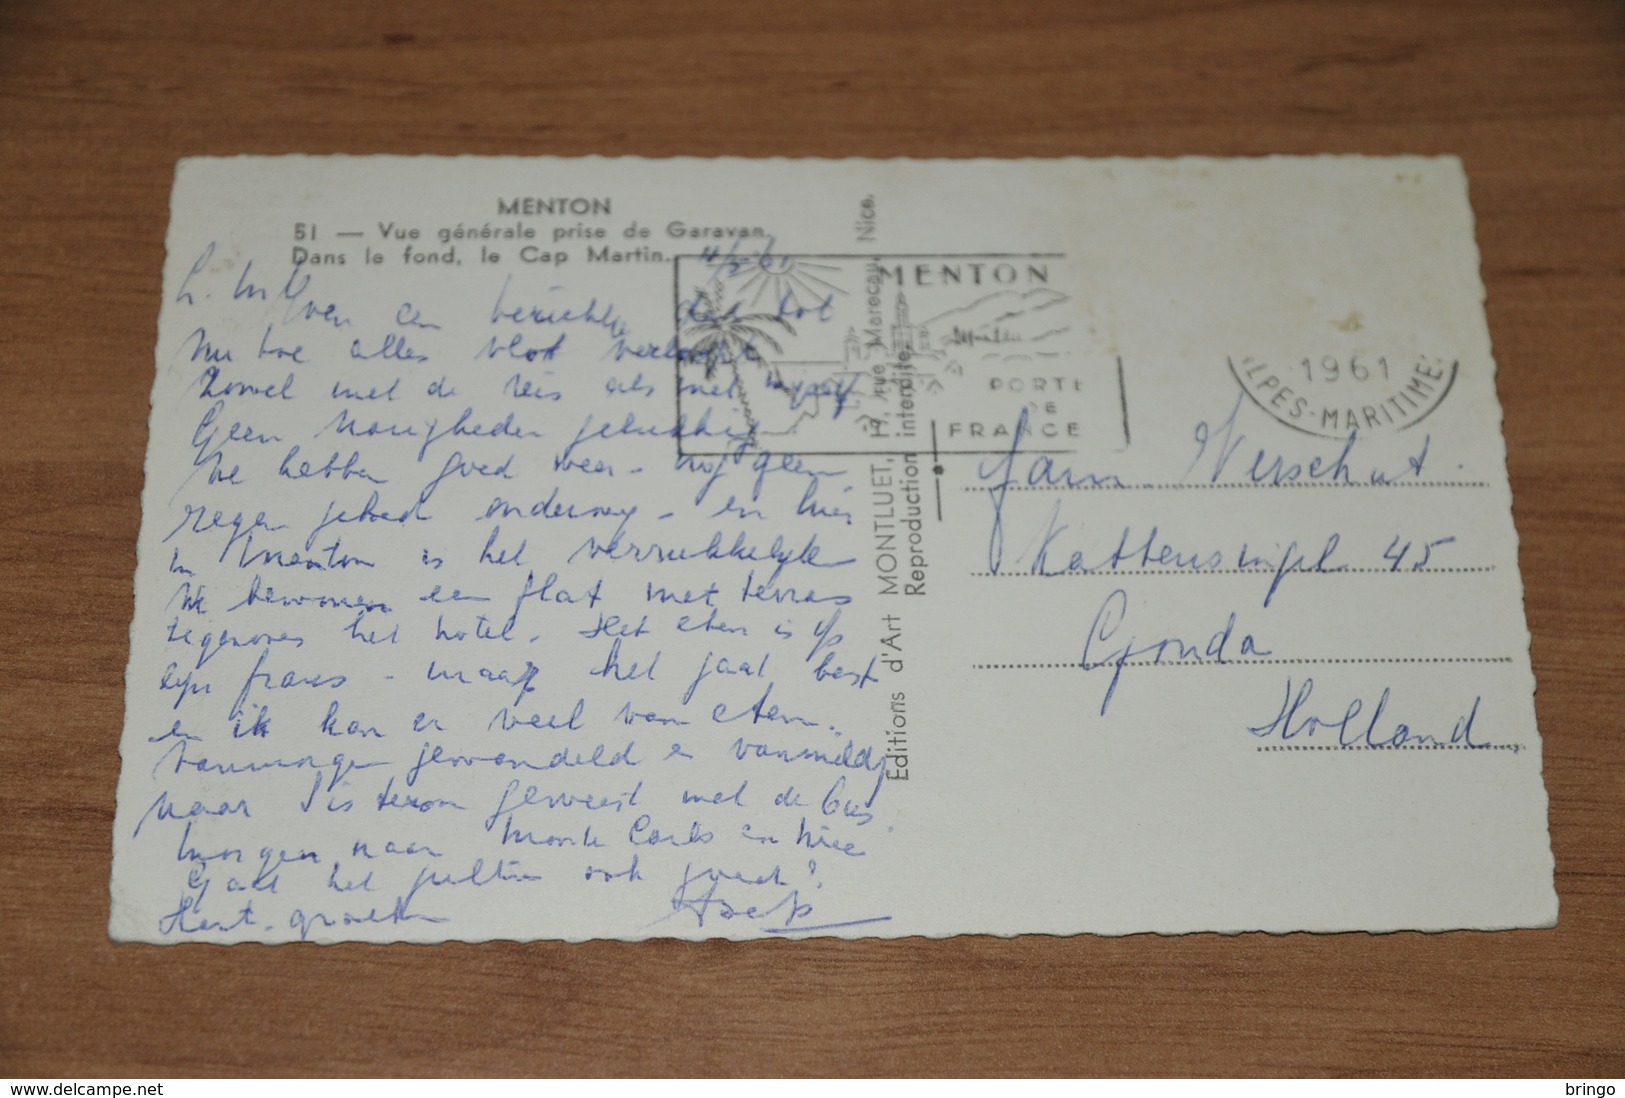 MENTON
51 — Vue générale prise de Garavan.
Dans le fond, le Cap Martin.
Even een berichtje dat tot
nu toe alles vlot verloopt
zowel met de reis als met
Geen moeigheden gelukkig
We hebben goed weer - nog geen
regen gehad onderweg - en hier
in Menton is het verrukkelijk
We bewonen een flat met terras
tegenover het hotel. Het eten is op
zijn frans - maar het gaat best
en ik kan er veel van eten.
Vanmorgen gewandeld en vanmiddag
naar Sisteron geweest met de bus
morgen naar Monte Carlo en Nice
Gaat het jullie ook goed?
Hart. groeten
MENTON
PORTE
DE
FRANCE
1961
ALPES-MARITIMES
Editions d'Art MONTLUET, 17, rue Marecau, Nice.
Reproduction interdite.
Fam. Verschut.
Kattensingel 45
Gouda
Holland
www.delcampe.net
bringo